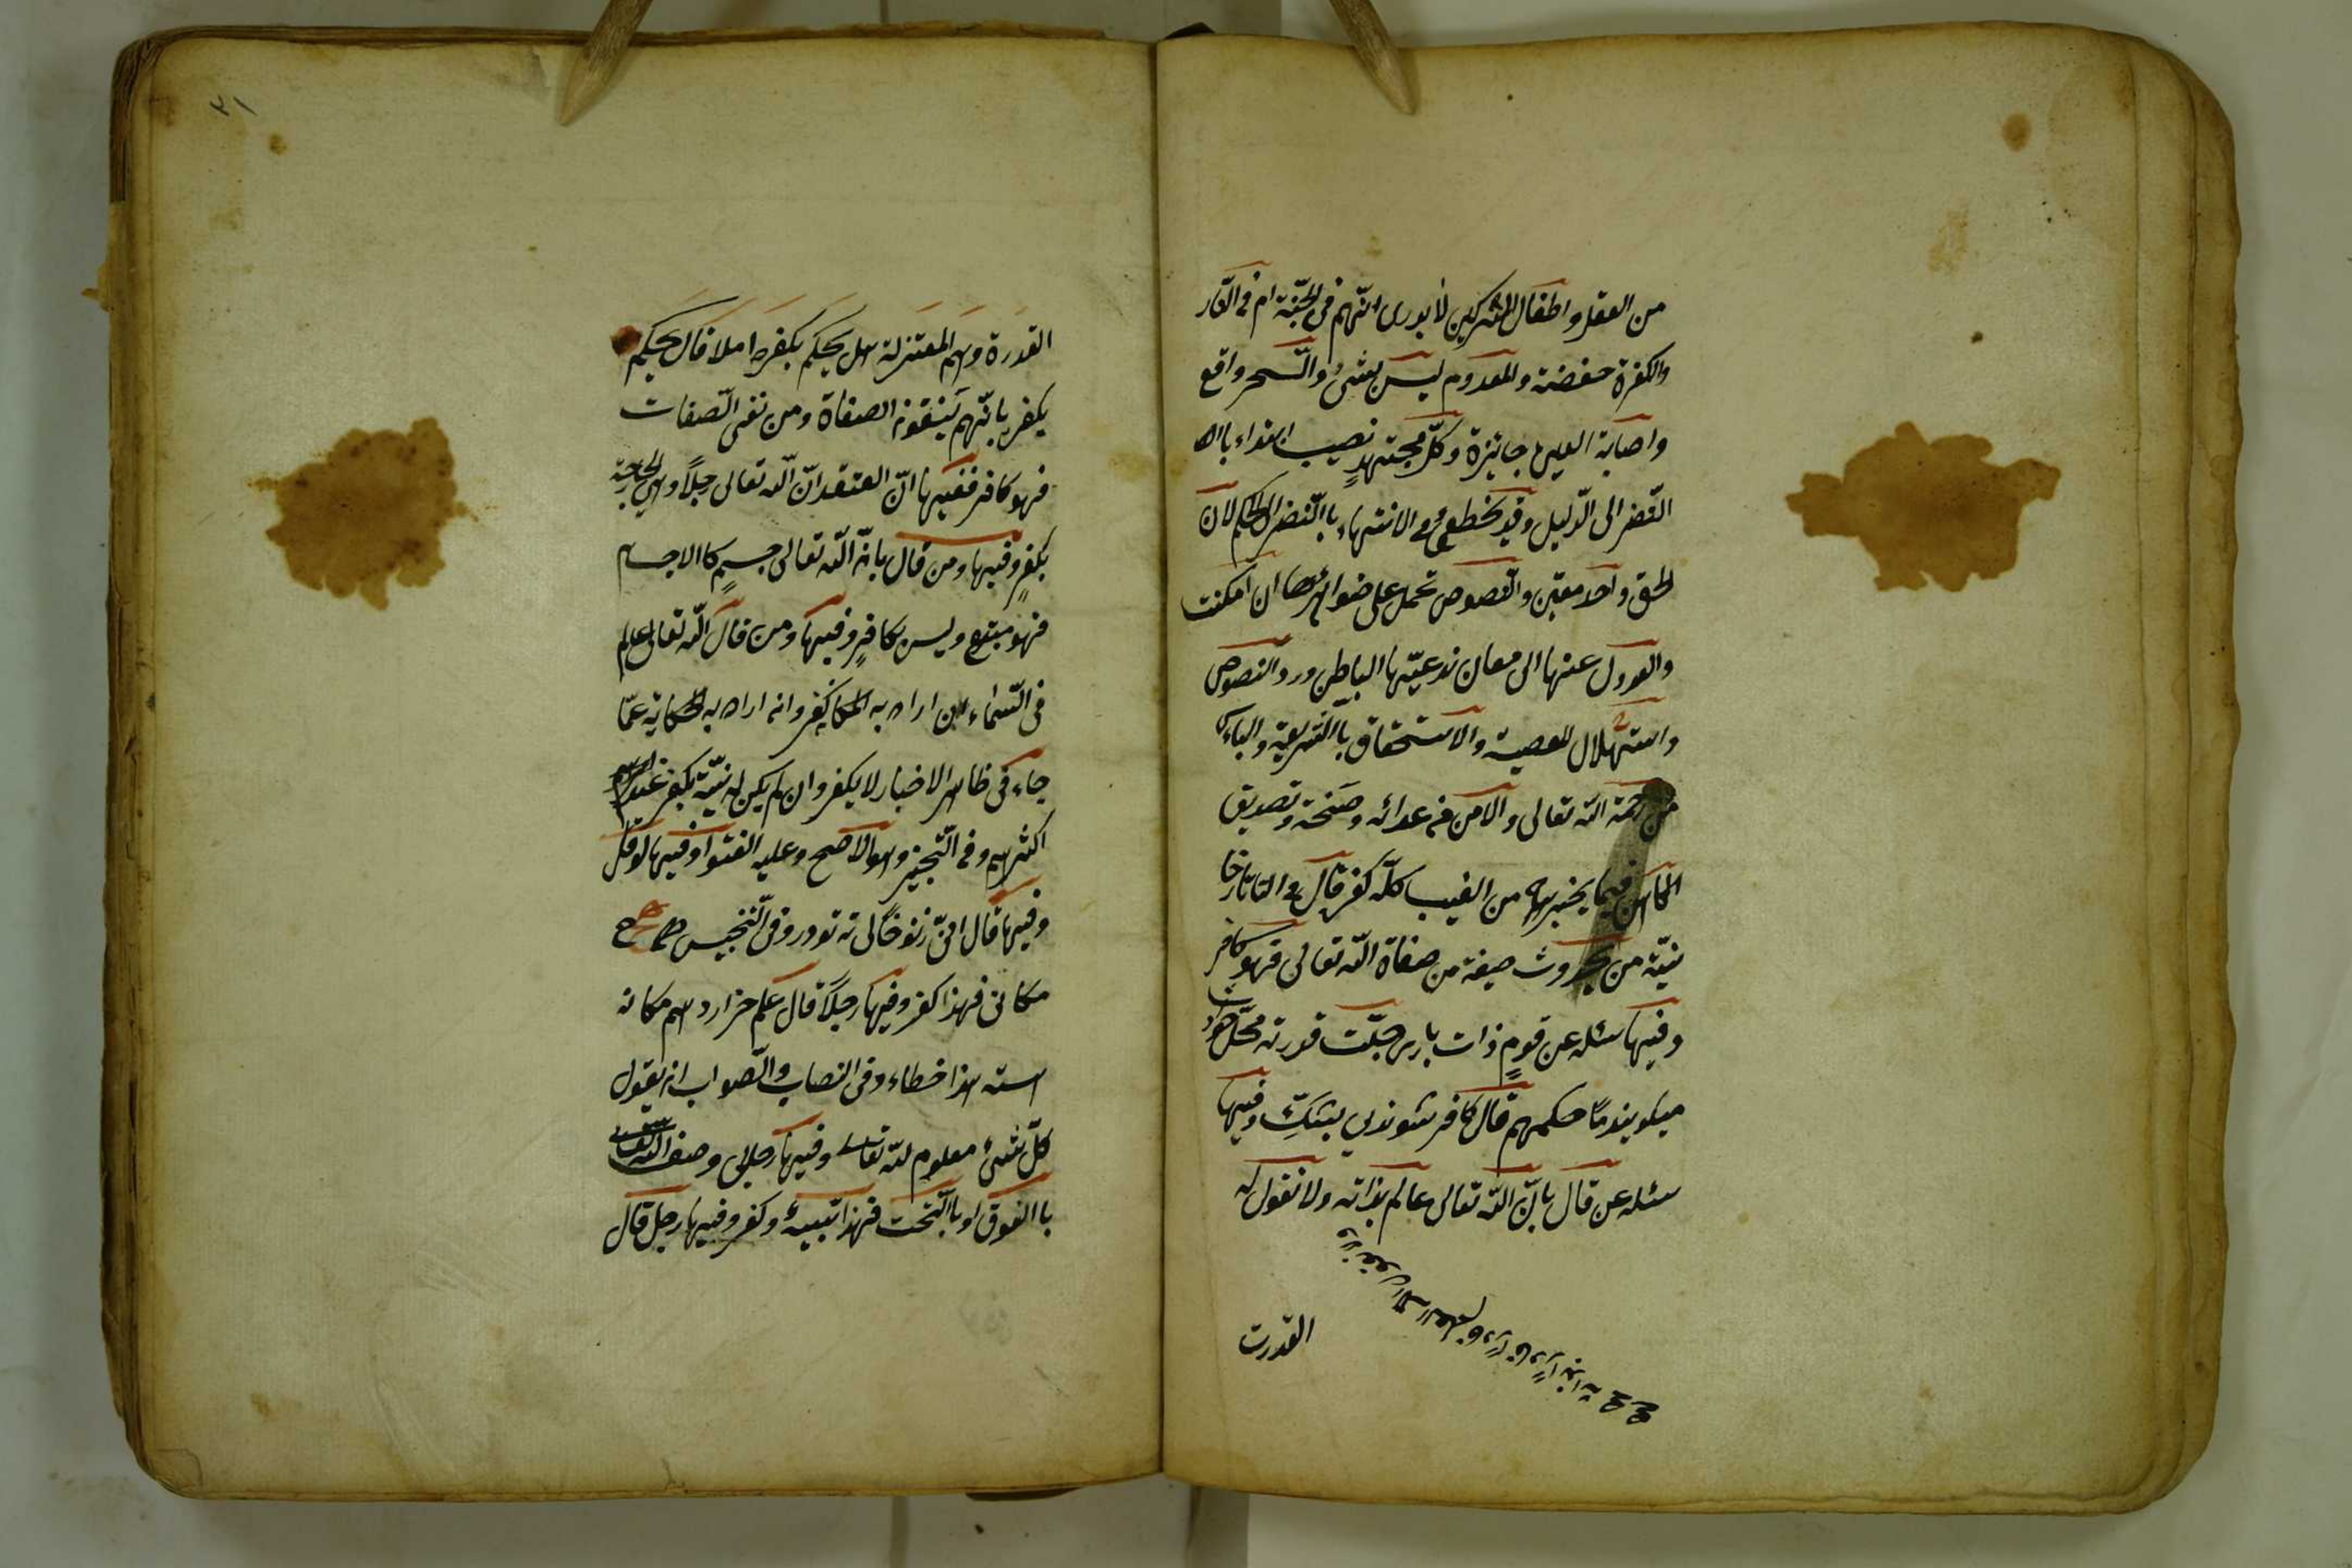 من العقل واطفال المشركين لا يدرى انّهم فى الجنّة ام فى النّار
والكفرة حفضة والمعدوم ليس بشئ والسّحر واقع
واصابة العين جايزة وكلّ مجتهد نصيب ابتداء باا
النّضر الى الدّليل وقد يخطئ فى الانتهاء باالنّضر الى الحكم لان
الحق واحد معيّن والنّصوص تحمل على ضواهرها ان امكنت
والعدول عنها الى معان ندعيّها الباطن ورد النصوص
واستهلال المعصية والاستحقاق باالشريعة والياس
من رحمة اللّه تعالى والامن من عدائه وتصديق
الكاهن فيما يخبر به من الغيب كلّه كفر قال فى التاتارخا
نيّة من بحدوث صيفة من صفاة اللّه تعالى فهو كافر
وفيها سئله عن قوم ذات بارى جلّت قدرته محلّ حوادث
ميكويند ما حكمهم قال كافر شوند بى بشك وفيها
سئله عن قال بانّ اللّه تعالى عالم بذاته ولا نقول له
ولا نقول له العلم قادر
القدرت
٣١
القدرة وهم المعتزلة هل يحكم بكفرها ام لا قال يحكم
بكفر بانّهم ينفون الصفاة ومن نفى الصّفات
فهو كافر ففيها انّ اعتقد انّ اللّه تعالى رجلاً وهى الجارحة
يكفر وفيها ومن قال بانّ اللّه تعالى جسم كاالاجسام
فهو مبتدع وليس بكافر وفيها ومن قال اللّه تعالى عالم
فى السّماء ان اراد به المكان كفر وان اراد به الحكاية عمّا
جاء فى ظاهر الاخبار لا يكفر وان لم يكن له نيّة يكفر عند
اكثرهم وفى التّجنيز وهو الاصح وعليه الفتوا وفيها لو قال
وفيها قال انّ زتو خالى نه تو در وفى التّنجيس هيچ
مكانى فهذا كفر وفيها رجلاً قال علم خدا در هم مكان
است هذا خطاء وفى النصاب والصّواب ان يقول
كلّ شئ معلوم للّه تعالى وفيها رجلا وصف اللّه تعالى
باالفوق او باالتحت فهذا تشبيه وكفر وفيها رجل قال